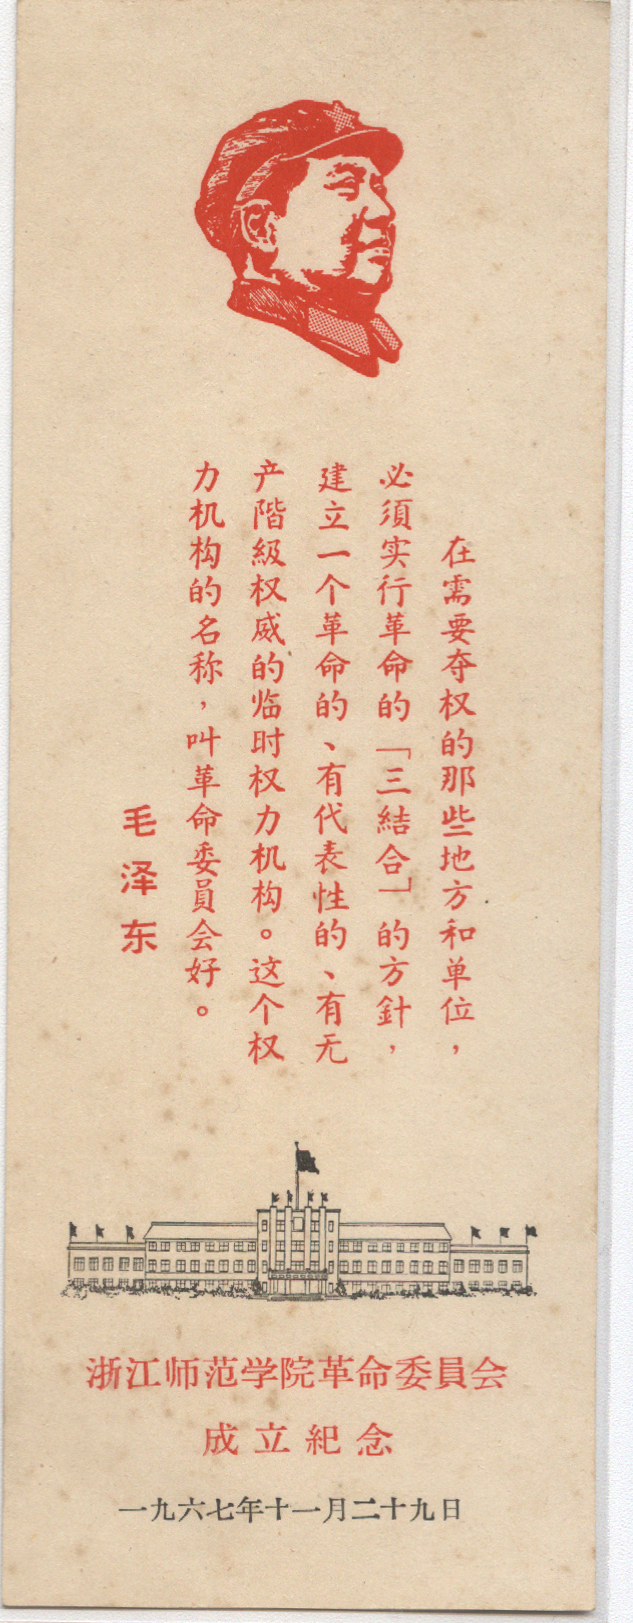 在需要夺权的那些地方和单位，
必須实行革命的「三結合」的方針，
建立一个革命的、有代表性的、有无
产階級权威的临时权力机构。这个权
力机构的名称，叫革命委員会好。
毛泽东
浙江师范学院革命委員会
成立紀念
一九六七年十一月二十九日